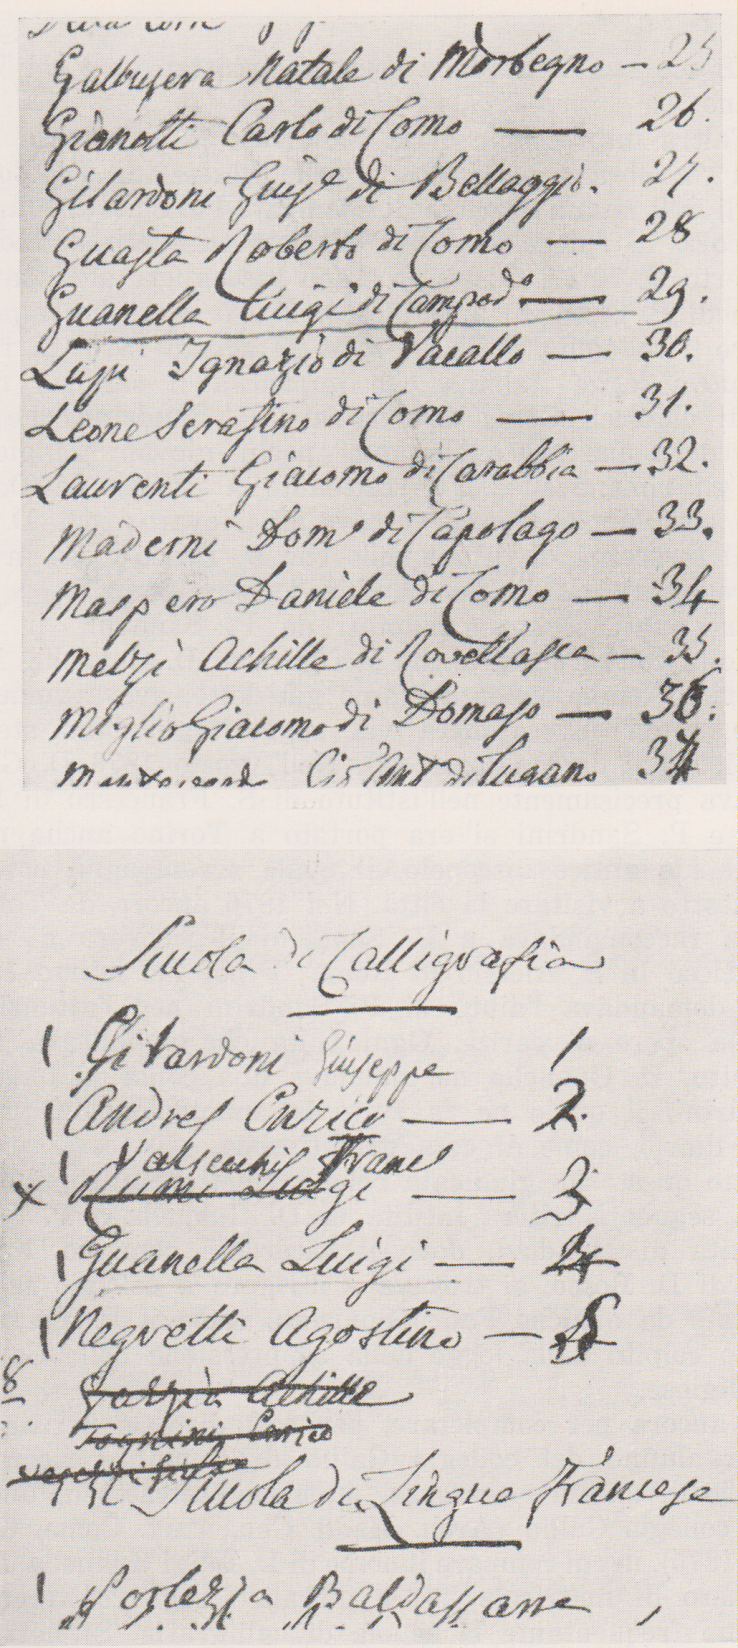 Galbusera Natale di Morbegno — 25
Gianotti Carlo di Como — 26.
Gilardoni Guis.e di Bellaggio. 27.
Guasta Roberto di Como — 28
Guanella Luigi di Campod.o — 29.
Lupi Ignazio di Vacallo — 30.
Leone Serafino di Como — 31.
Laurenti Giacomo di Carabbia — 32.
Maderni Dom.o di Capolago — 33.
Maspero Daniele di Como — 34
Melzi Achille di Rovellasca — 35.
Miglio Giacomo di Domaso — 36.
di Lugano 37
Scuola di Calligrafia
Gilardoni Giuseppe 1
Andres Enrico — 2.
Valsecchi Franc
x Rumi Luigi — 3
Guanella Luigi — 4
Negretti Agostino — 5
8 Achille
Tognini Enrico
Scuola di Lingua Francese
Porlezza Baldassarre